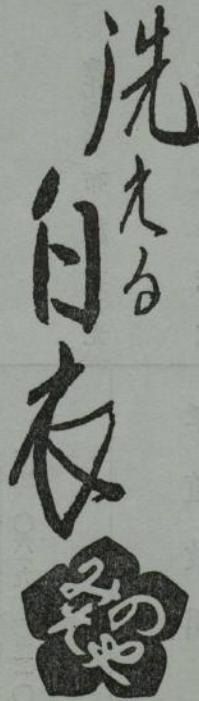 洗える
白衣
みのや